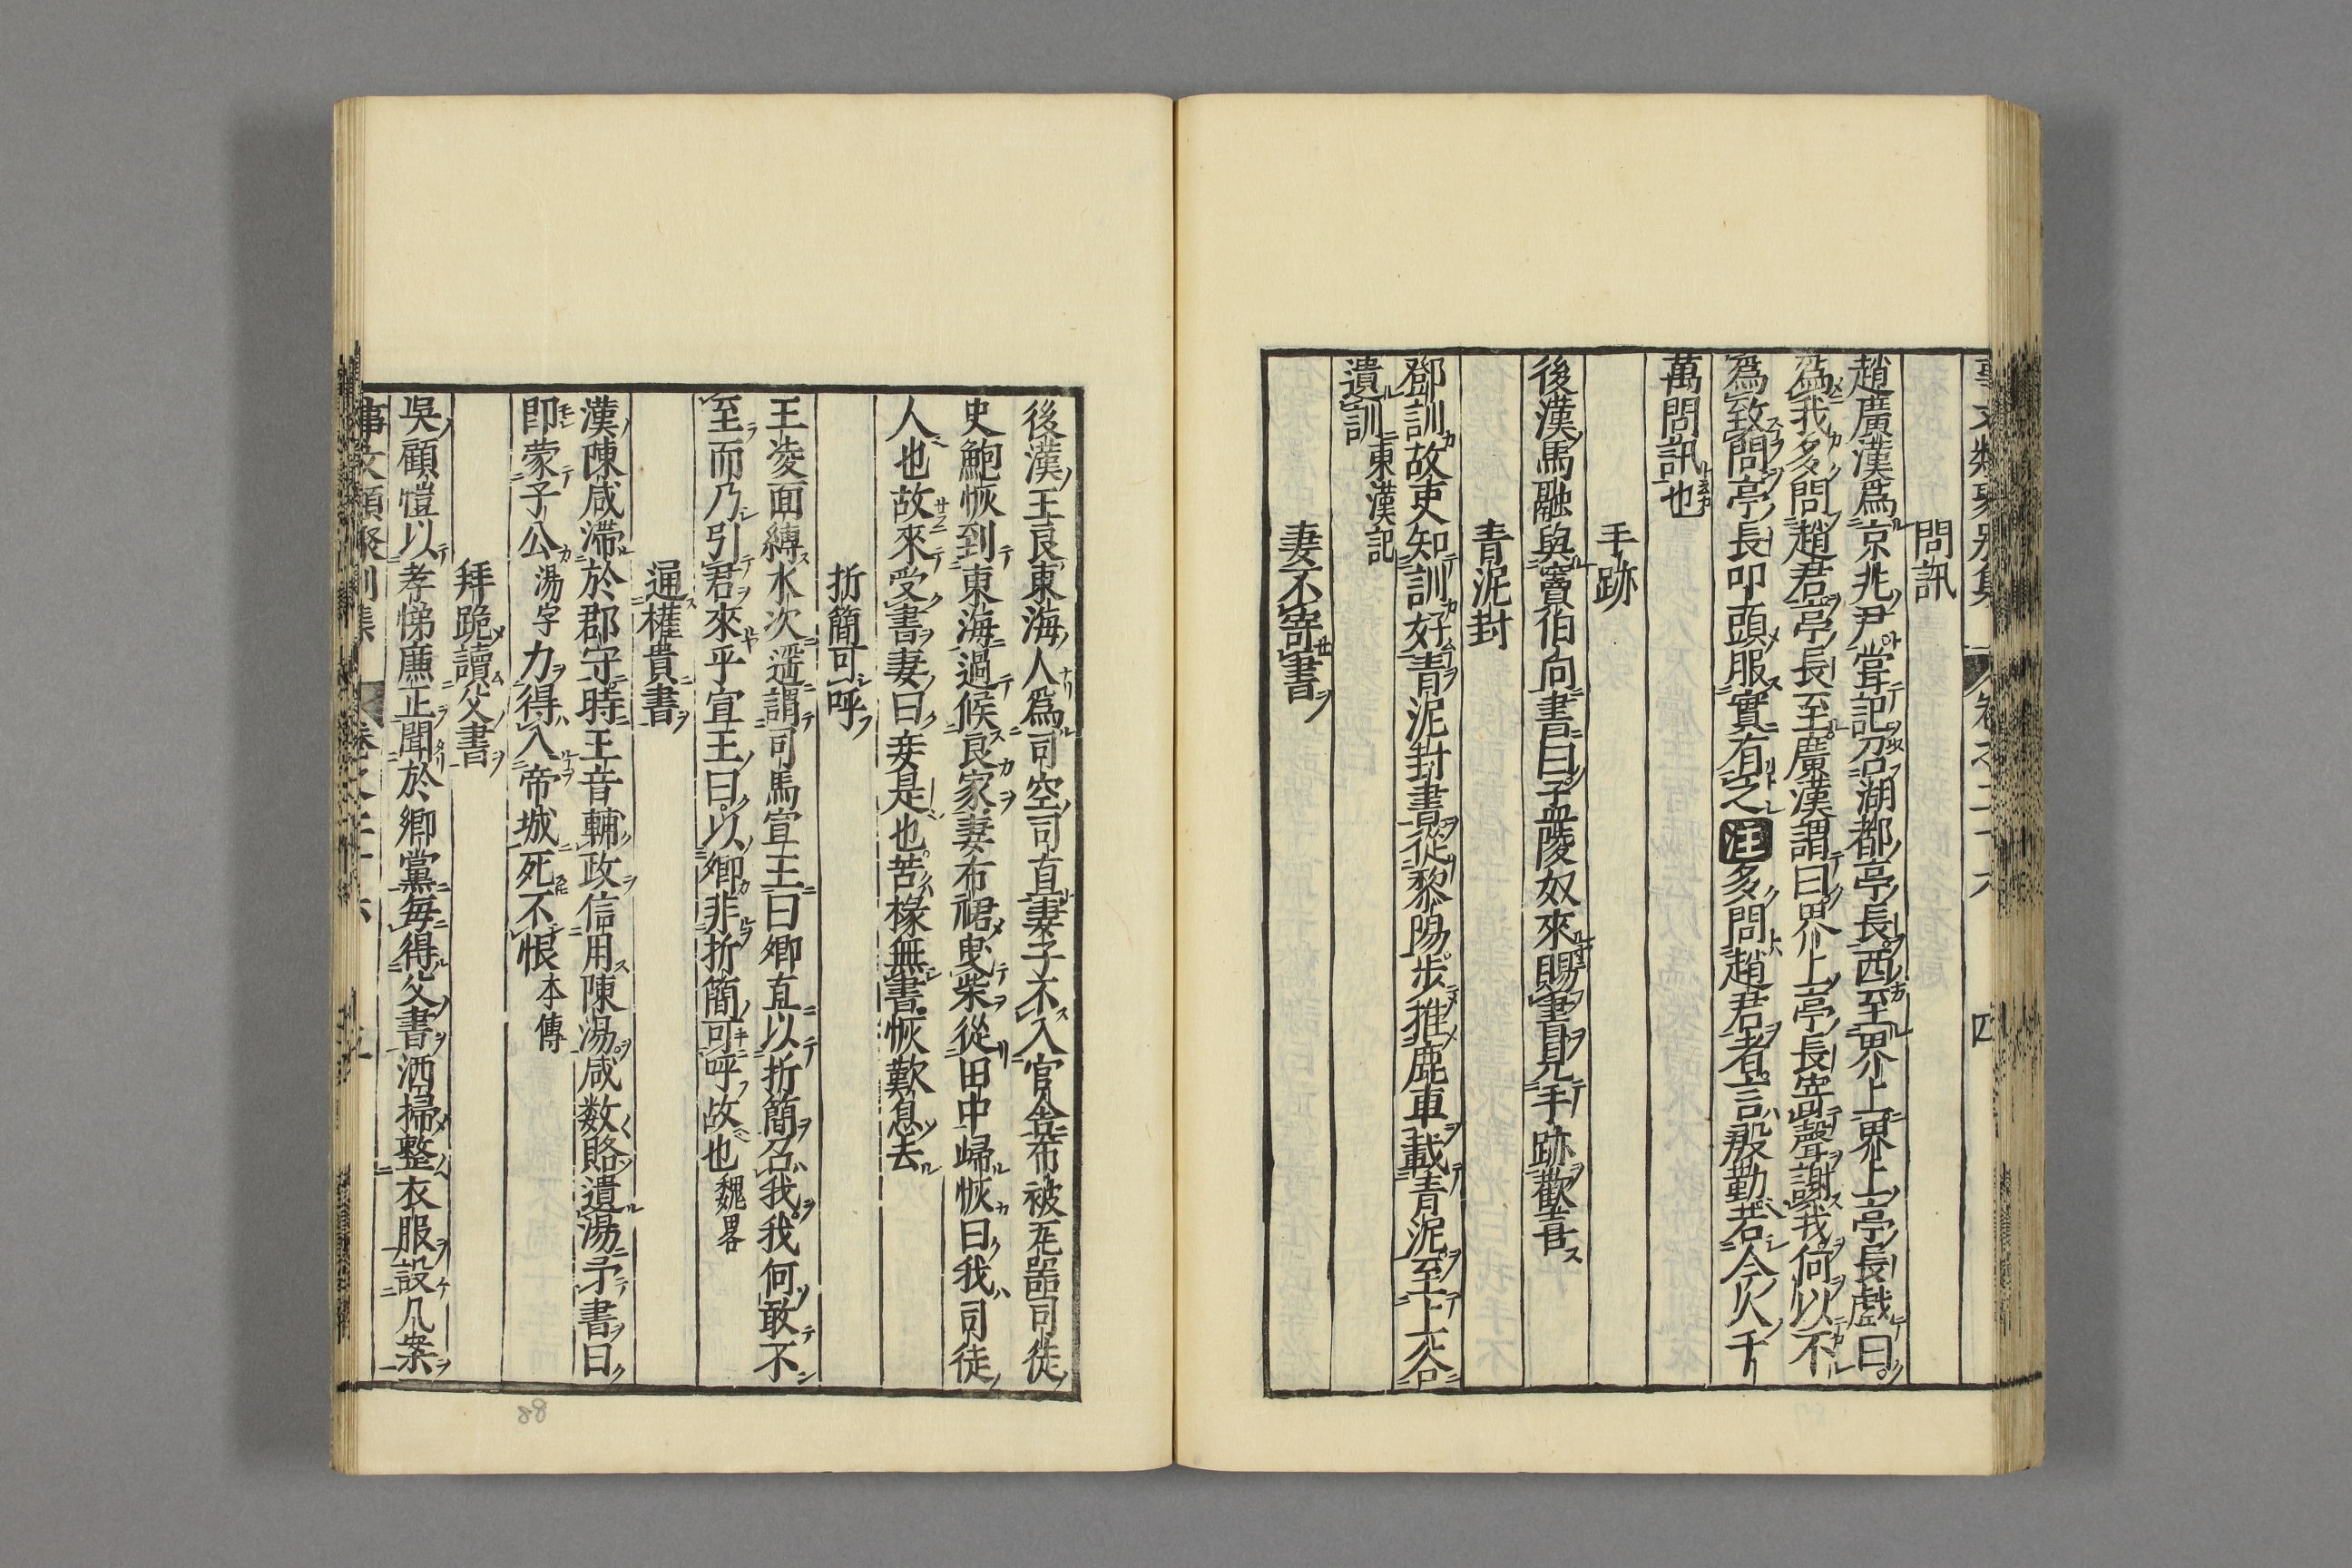 問訊
趙廣漢爲京兆尹嘗記召湖都亭長西至界上界上亭長戲曰
爲我多問趙君亭長至廣漢謂曰界上亭長寄聲謝我何以不
爲致問亭長叩頭服實有之注多問趙君者言殷勤若今人千
萬問訊也
手跡
後漢馬融與竇伯向書曰孟陵奴來賜書見手跡歡喜
青泥封
鄧訓故吏知訓好青泥封書從黎陽步推鹿車載青泥至上谷
遺訓東漢記
妻不寄書
後漢王良東海人爲司空司直妻子不入官舍布被瓦器司徒
史鮑恢到東海過候良家妻布裙曳柴從田中歸恢曰我司徒
人也故來受書妻曰妾是也苦掾無書恢歎息去
折簡可呼
王淩面縛水次遥謂司馬宣王曰卿直以折簡召我我何敢不
至而乃引君來乎宣王曰以卿非折簡可呼故也魏畧
通權貴書
漢陳咸滯於郡守時王音輔政信用陳湯咸数賂遺湯予書曰
卽蒙子公湯字力得入帝城死不恨本傳
拜跪讀父書
吳顧愷以孝悌廉正聞於鄉黨每得父書洒掃整衣服設几案